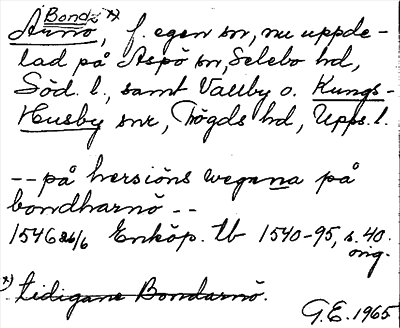 Bond- x)
Arnö, f. egen sn, nu uppde-
lad på Aspö sn, Selebo hd,
Söd. l., samt Vallby o. Kungs-
Husby snr, Trögds hd, Upps. l.
-- på hersiöns wegna på
bondharnö --
1546 26/6 Enköp. tb 1540-95, s. 40.
orig.
x) tidigare Bondarnö.
G.E. 1965